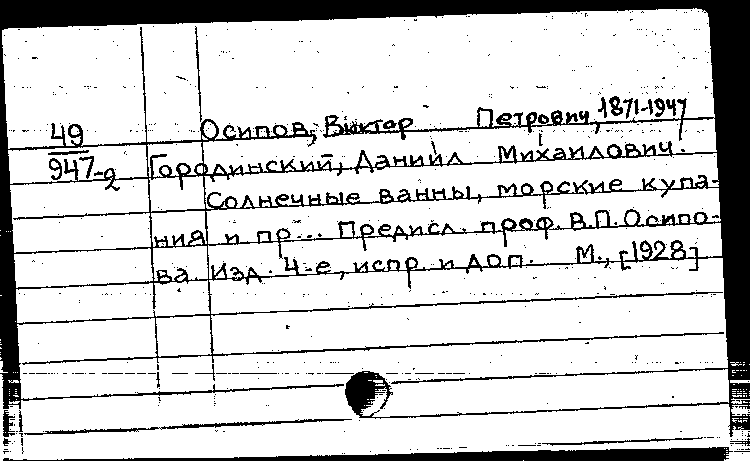 49
947-2
Осипов, Виктор Петрович, 1871-1947
Городинский, Даниил Михайлович.
Солнечные ванны, морские купа-
ния и пр... Предисл. проф. В.П. Осипо-
ва. Изд. 4-е, испр. и доп. М., [1928]